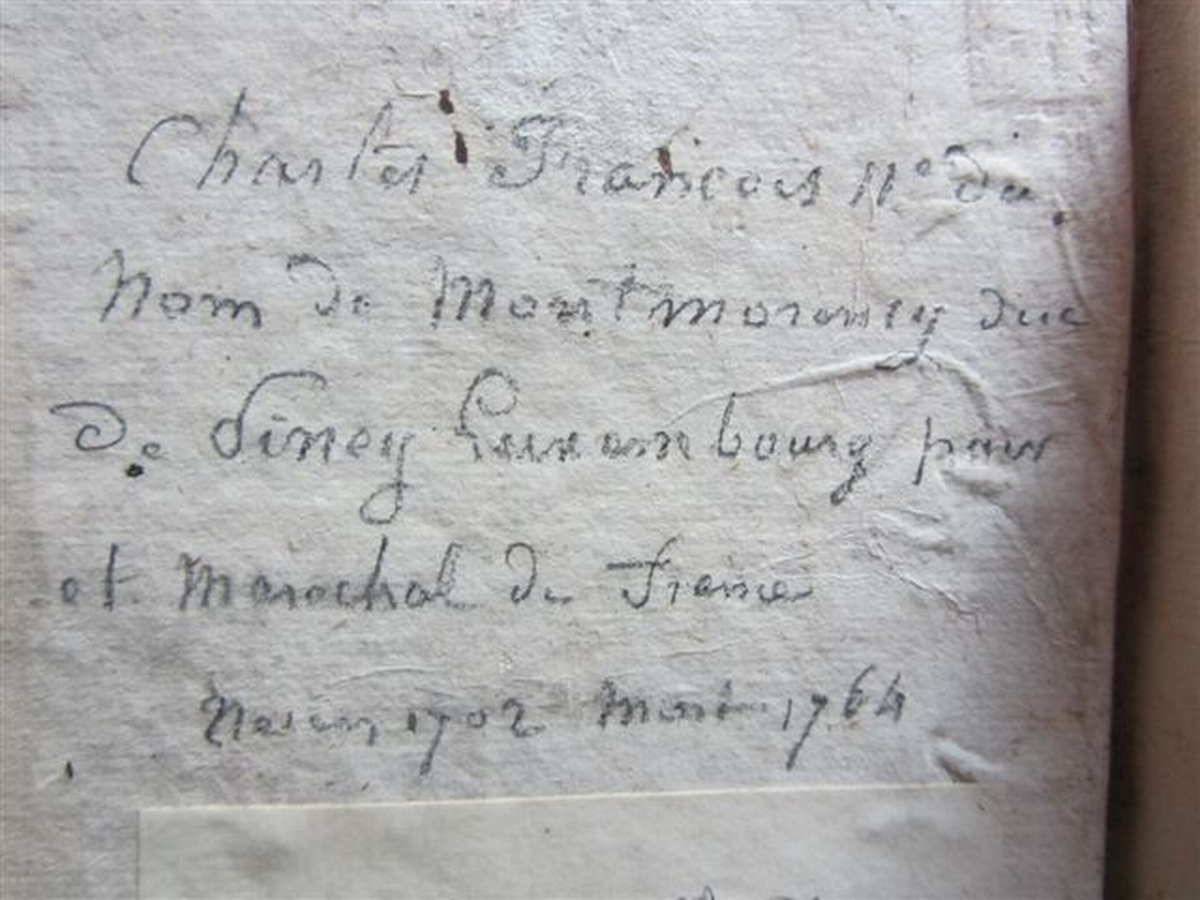 Charles François IIe du
Nom de Montmorency duc
De Piney Luxembourg pair
et Marechal de France
Né en 1702 Mort 1764